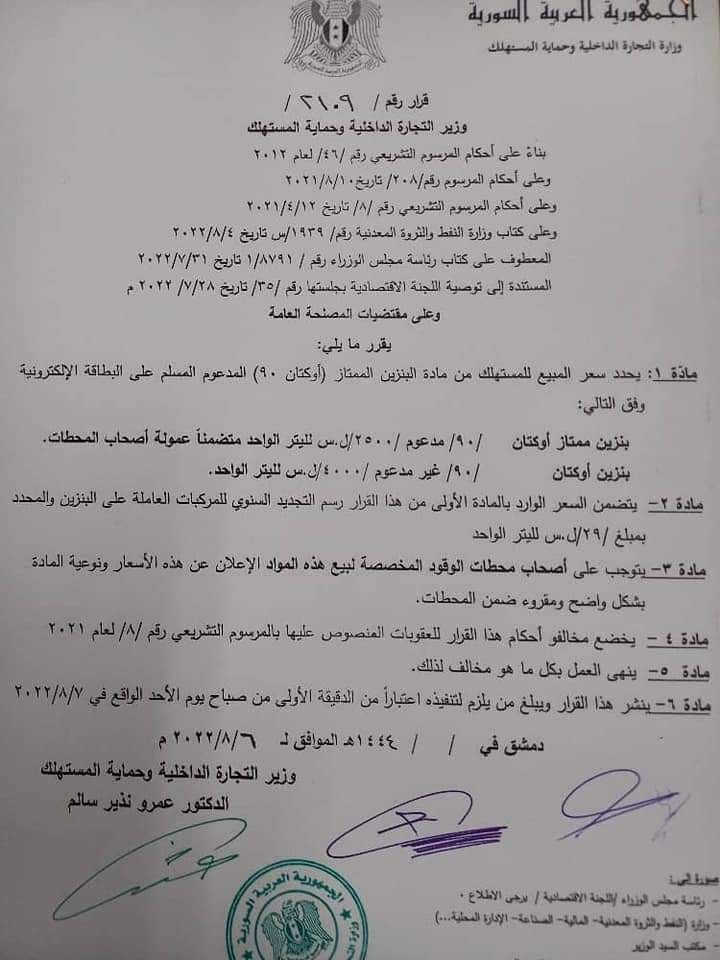 الجمهورية العربية السورية
وزارة التجارة الداخلية وحماية المستهلك
قرار رقم / ٢١٠٩ /
وزير التجارة الداخلية وحماية المستهلك
بناءً على أحكام المرسوم التشريعي رقم /٤٦/ لعام ٢٠١٢
وعلى أحكام المرسوم رقم/٢٠٨/ تاريخ٢٠٢١/٨/١٠
وعلى أحكام المرسوم التشريعي رقم /٨/ تاريخ ٢٠٢١/٤/١٢
وعلى كتاب وزارة النفط والثروة المعدنية رقم/ ١٩٣٩/س تاريخ ٢٠٢٢/٨/٤
المعطوف على كتاب رئاسة مجلس الوزراء رقم / ١/٨٧٩١ تاريخ ٢٠٢٢/٧/٣١
المستندة إلى توصية اللجنة الاقتصادية بجلستها رقم /٣٥/ تاريخ ٢٨/ ٧/ ٢٠٢٢ م
وعلى مقتضيات المصلحة العامة
يقرر ما يلي:
مادّة ١: يحدد سعر المبيع للمستهلك من مادة البنزين الممتاز (أوكتان ٩٠) المدعوم المسلم على البطاقة الإلكترونية
وفق التالي:
بنزين ممتاز أوكتان /٩٠/ مدعوم /٢٥٠٠/ل.س لليتر الواحد متضمناً عمولة أصحاب المحطات.
بنزين أوكتان /٩٠/ غير مدعوم /٤٠٠٠/ل.س لليتر الواحد.
مادة ٢- يتضمن السعر الوارد بالمادة الأولى من هذا القرار رسم التجديد السنوي للمركبات العاملة على البنزين والمحدد
بمبلغ /٢٩/ل.س لليتر الواحد
مادة ٣- يتوجب على أصحاب محطات الوقود المخصصة لبيع هذه المواد الإعلان عن هذه الأسعار ونوعية المادة
بشكل واضح ومقروء ضمن المحطات.
مادة ٤ - يخضع مخالفو أحكام هذا القرار للعقوبات المنصوص عليها بالمرسوم التشريعي رقم /٨/ لعام ٢٠٢١
مادة ٥- ينهى العمل بكل ما هو مخالف لذلك.
مادة ٦- ينشر هذا القرار ويبلغ من يلزم لتنفيذه اعتباراً من الدقيقة الأولى من صباح يوم الأحد الواقع في ٢٠٢٢/٨/٧
دمشق في / / ١٤٤٤هـ الموافق لـ ٢٠٢٢/٨/٦ م
وزير التجارة الداخلية وحماية المستهلك
الدكتور عمرو نذير سالم
صورة إلى:
- رئاسة مجلس الوزراء /اللجنة الاقتصادية / يرجى الاطلاع .
- وزارة (النفط والثروة المعدنية- المالية- الصناعة- الإدارة المحلية...)
- مكتب السيد الوزير
الجمهورية العربية السورية